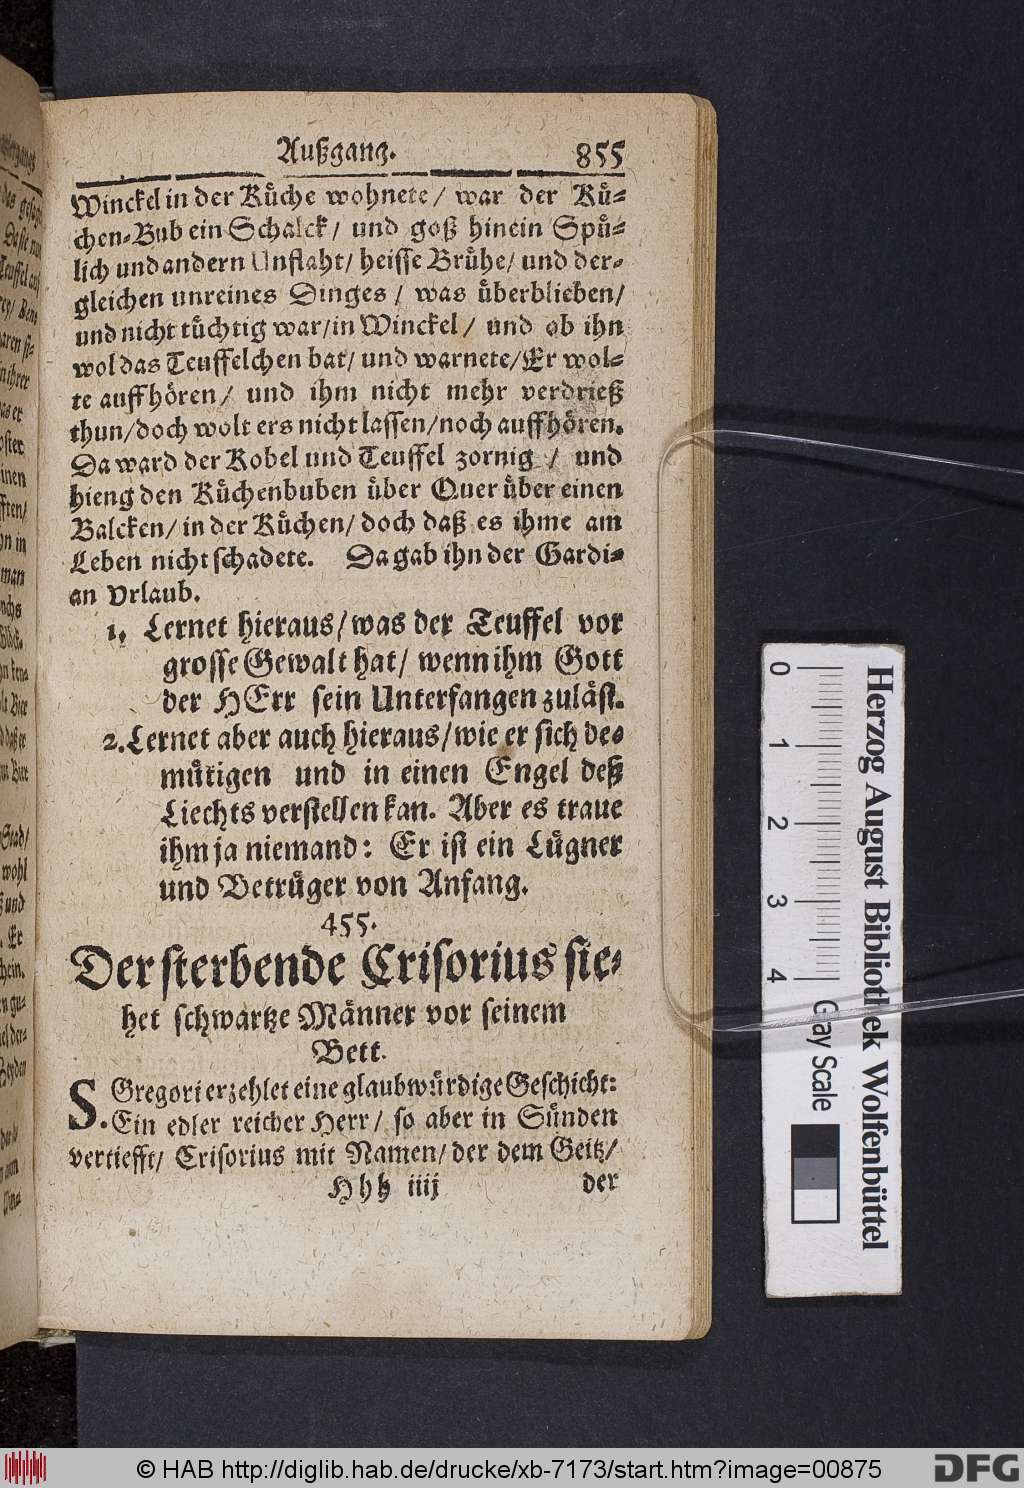 Außgang. 855
Winckel in der Küche wohnete/ war der Kü-
chen-Bub ein Schalck/ und goß hinein Spü-
lich und andern Unflaht/ heisse Brühe/ und der-
gleichen unreines Dinges/ was überblieben/
und nicht tüchtig war/ in Winckel/ und ob ihn
wol das Teuffelchen bat/ und warnete/ Er wol-
te auffhören/ und ihm nicht mehr verdrieß
thun/ doch wolt ers nicht lassen/ noch auffhören.
Da ward der Kobel und Teuffel zornig/ und
hieng den Küchenbuben über Quer über einen
Balcken/ in der Küchen/ doch daß es ihme am
Leben nicht schadete. Da gab ihn der Gardi-
an Vrlaub.
1. Lernet hieraus/ was der Teuffel vor
grosse Gewalt hat/ wenn ihm Gott
der HErr sein Unterfangen zuläst.
2. Lernet aber auch hieraus/ wie er sich de-
mütigen und in einen Engel deß
Liechts verstellen kan. Aber es traue
ihm ja niemand: Er ist ein Lügner
und Betrüger von Anfang.
455.
Der sterbende Crisorius sie-
het schwartze Männer vor seinem
Bett.
S. Gregori erzehlet eine glaubwürdige Geschicht:
Ein edler reicher Herr/ so aber in Sünden
vertiefft/ Crisorius mit Namen/ der dem Geitz/
Hhh iiij der
0 1 2 3 4
Gray Scale
Herzog August Bibliothek Wolfenbüttel
© HAB http://diglib.hab.de/drucke/xb-7173/start.htm?image=00875
DFG